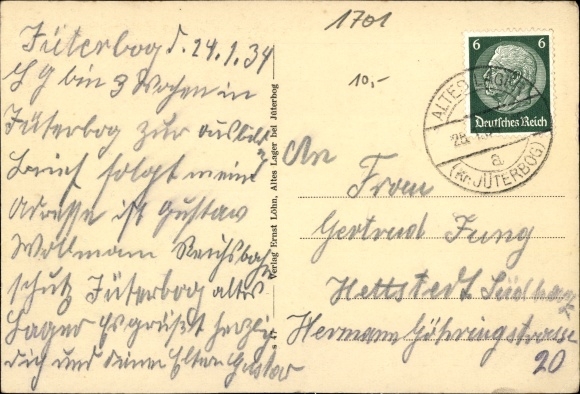 1701
10,-
Jüterbog d. 24.1.34
bin 3 Wochen in
Jüterbog zur Ausbild
Brief folgt meine
Adresse ist Gustav
Wollmann Reichsbahn
schutz Jüterbog altes
Lager Es grüßt herzli
dich und deine Eltern Gustav
Verlag Ernst Löhn, Altes Lager bei Jüterbog
6 6
Deutsches Reich
ALTES LAGER
a
(Kr. JÜTERBOG)
An
Frau
Gertrud Jung
Hettstedt Südharz
Hermann Göhringstrasse
20